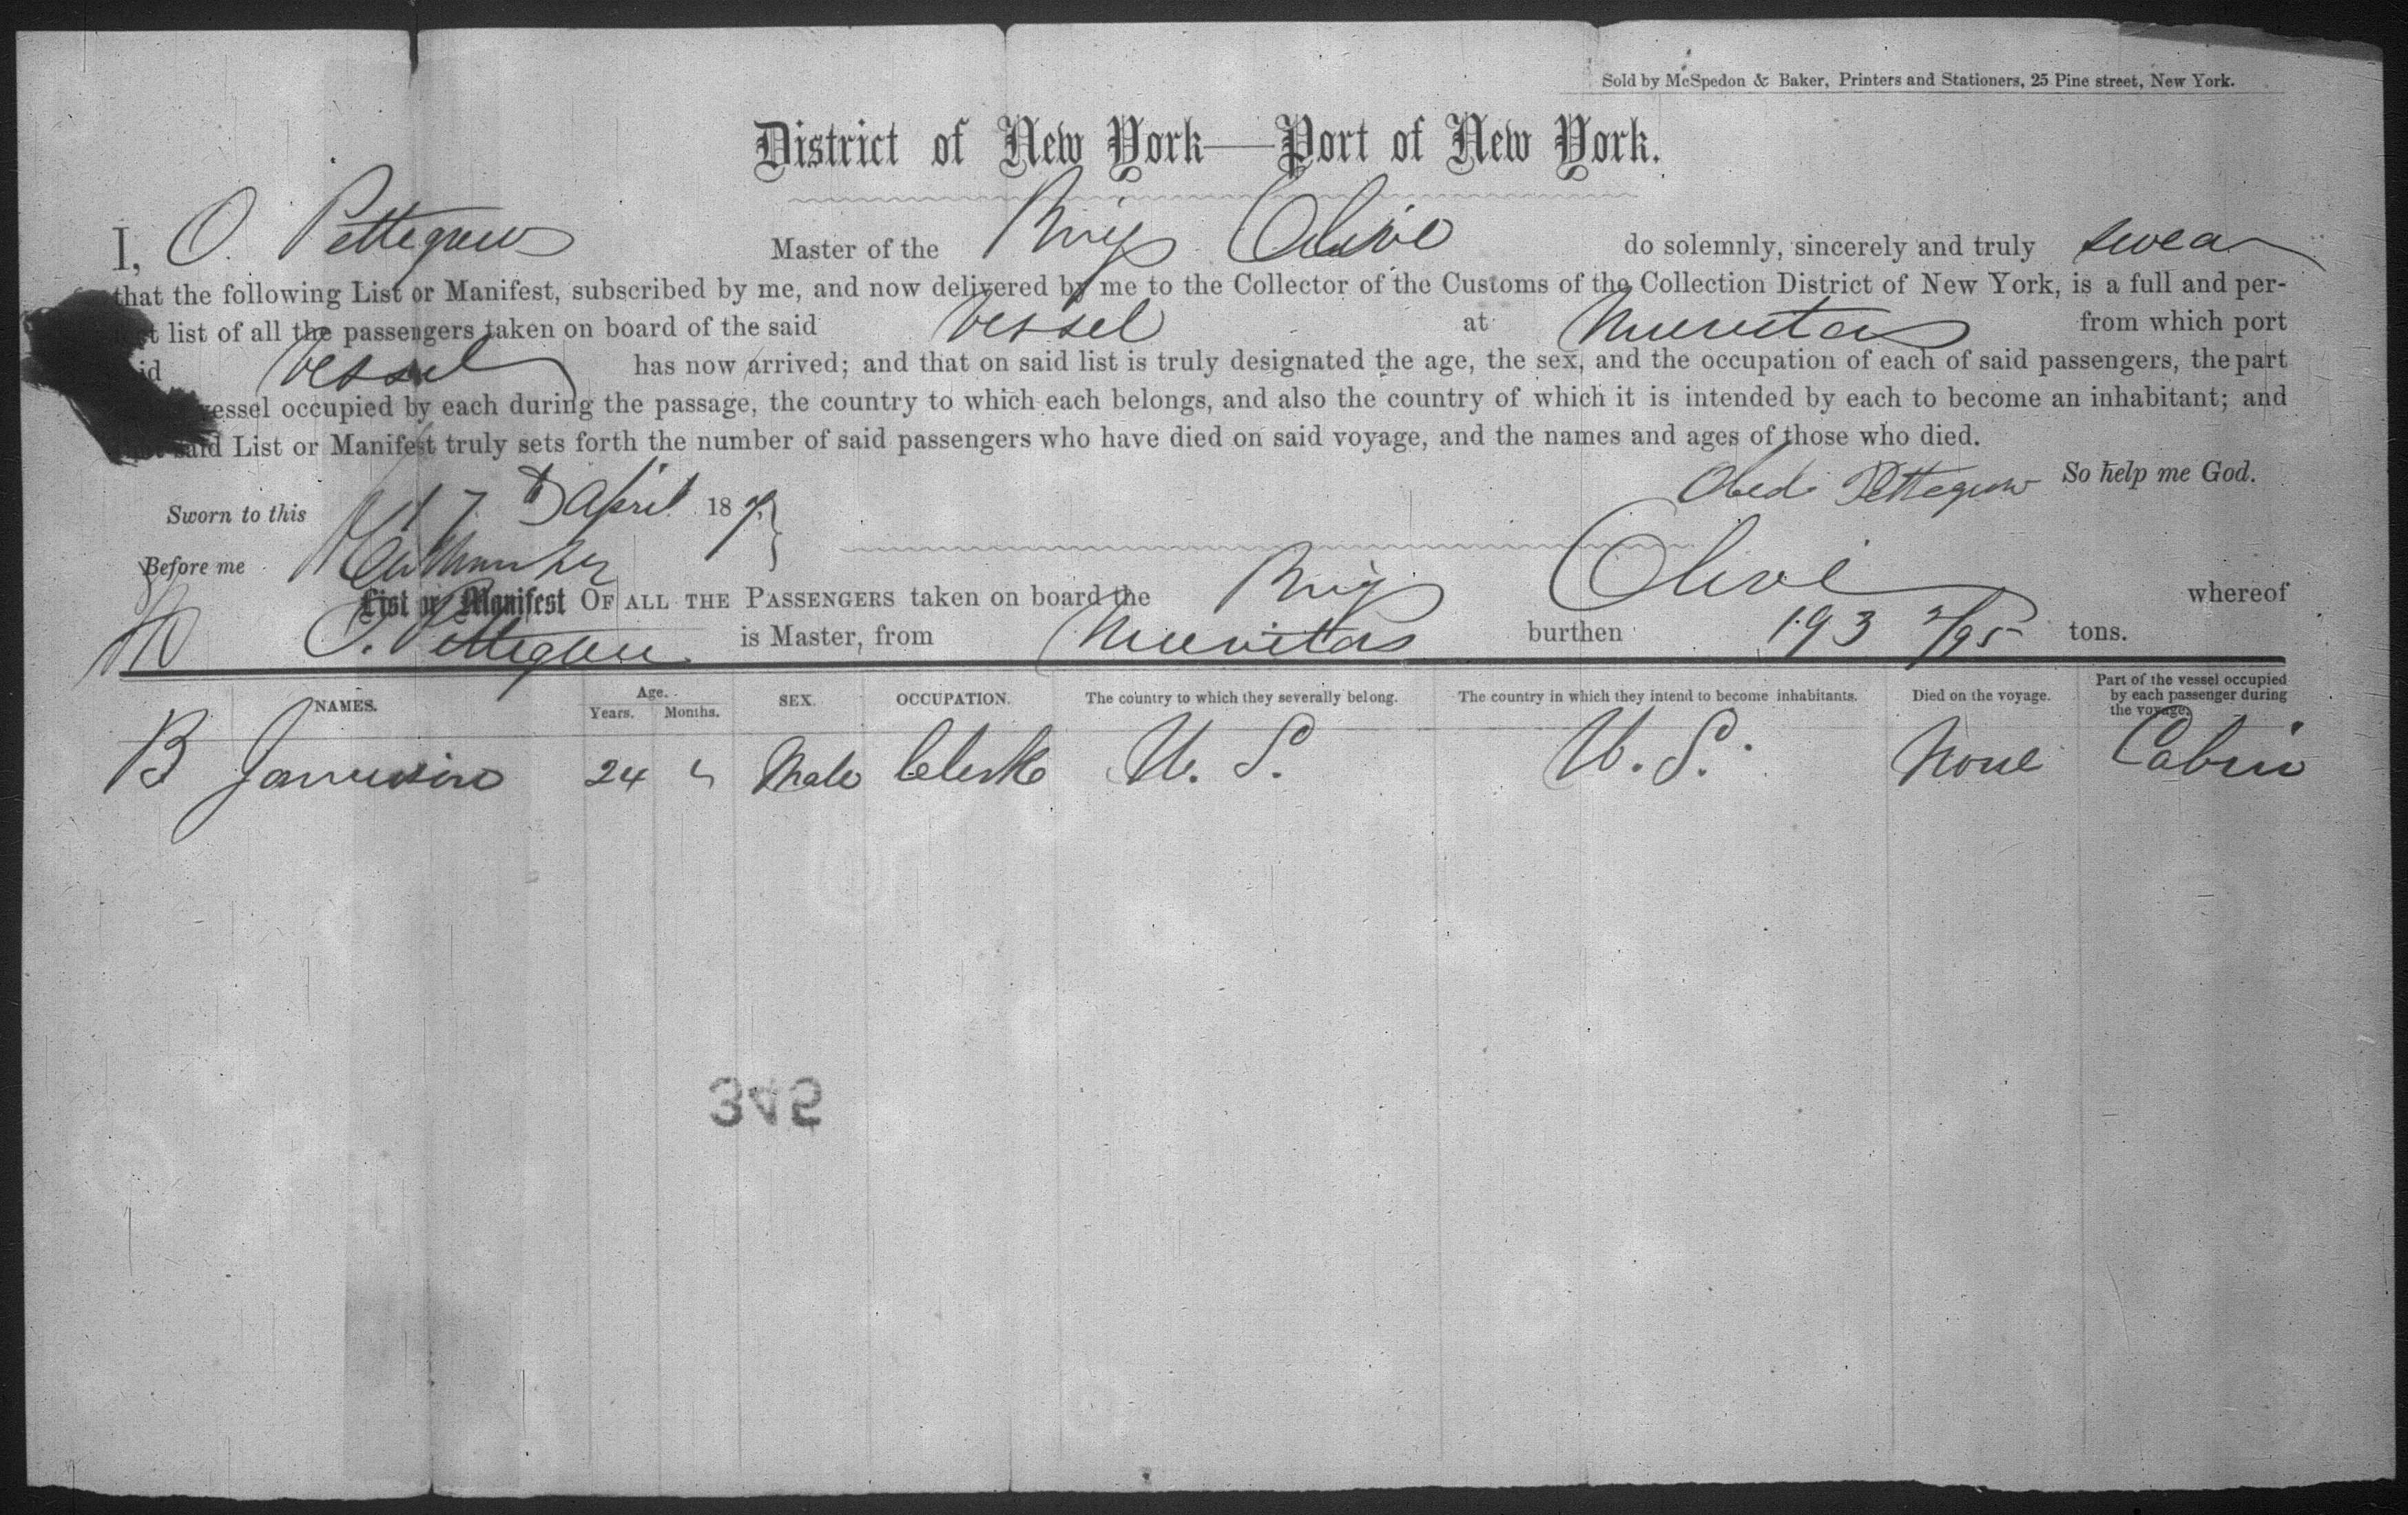 Sold by McSpedon & Baker, Printers and Stationers, 25 Pine street, New York.
District of New York—Port of New York.
I, O. Pettegrew Master of the Brig Olive do solemnly, sincerely and truly swear
that the following List or Manifest, subscribed by me, and now delivered by me to the Collector of the Customs of the Collection District of New York, is a full and per-
list of all the passengers taken on board of the said Vessel at Nuevitas from which port
Vessel has now arrived; and that on said list is truly designated the age, the sex, and the occupation of each of said passengers, the part
vessel occupied by each during the passage, the country to which each belongs, and also the country of which it is intended by each to become an inhabitant; and
said List or Manifest truly sets forth the number of said passengers who have died on said voyage, and the names and ages of those who died.
So help me God.
Obed Pettegrew
Sworn to this 17th April 18
Before me
List or Manifest OF ALL THE PASSENGERS taken on board the Brig Olive whereof
O. Pettegrew is Master, from Nuevitas burthen 193 /95 tons.
NAMES. Age. Years. Months. SEX. OCCUPATION. The country to which they severally belong. The country in which they intend to become inhabitants. Died on the voyage. Part of the vessel occupied by each passenger during the voyage.
B Jamieson 24 Male Clerk U. S. U. S. None Cabin
345